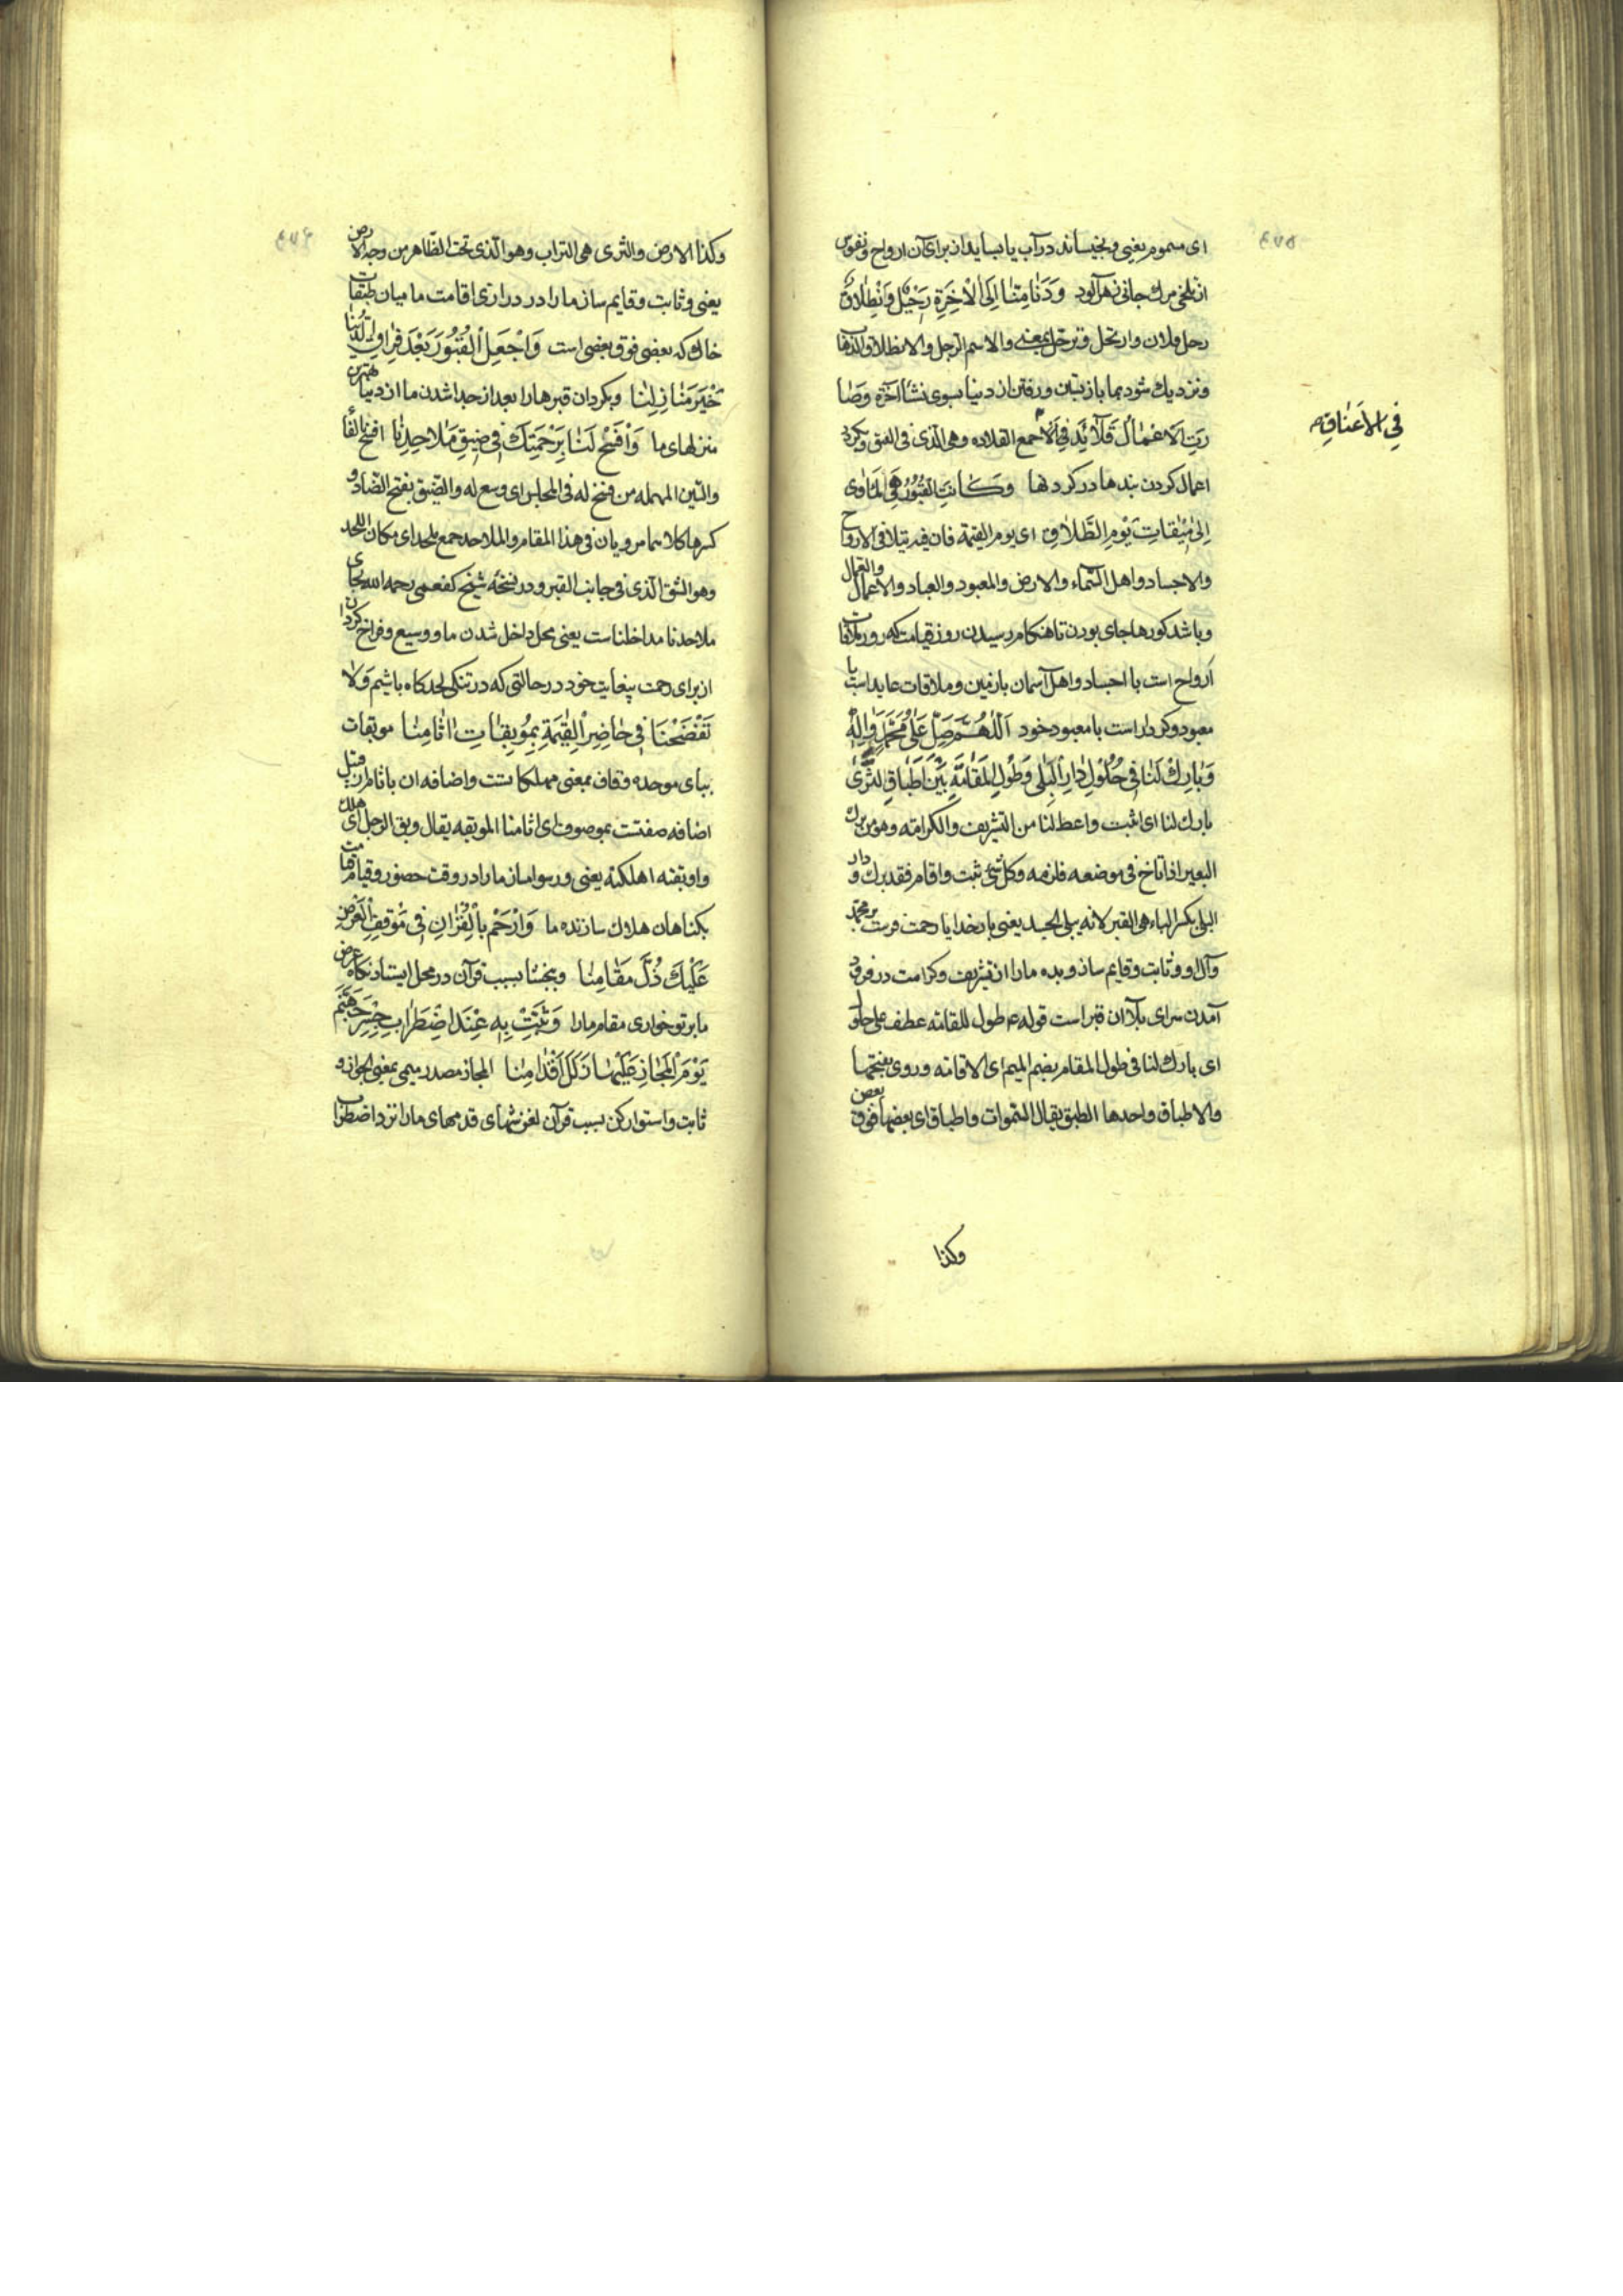 ٤٧٥
ای مسموم یعنی و بخیساند در آب یا بساید از برای آن ارواح و نفوس
از تلخی مرك جانی زهرآلود وَدَنَا مِنَّا اِلَی الْاٰخِرَةِ رَحٖیْلٌ وَاِنْطِلَاقٌ
رحل فلان وارتحل و ترحّل بمعنی والاسم الرحیل والانطلاق الذهاب
و نزدیك شود بما باز بستن و رفتن از دنیا بسوی نشأ آخرة وَصَا
رَتِ الْاَعْمٰالُ قَلَآئِدَ فِی الْاَ جمع القلاده وهی الّذی فی العنق و بکردد
فِی الْاَعْنٰاقِ
اعمال کردن بندها در کردنها وَكَانَتِ الْقُبُوْرُ هِیَ الْمَاْوٰی
اِلٰی مٖیْقَاتِ یَوْمِ التَّلَاقِ ای یوم القیمة فان فیه یتلاقی الارواح
والاجساد واهل السّماء والارض والمعبود والعباد والاعمال والعمال
و باشد کورها جای بودن تا هنکام رسیدن روز قیامت که روز ملاقات
اَرواح است با اجساد و اهل آسمان با زمین و ملاقات عابد است با
معبود و کردار است با معبود خود اَللّٰهُمَّ صَلِّ عَلٰی مُحَمَّدٍ وَاٰلِهٖ
وَبٰارِكْ لَنَا فٖی حُلُوْلِ دٰارِ الْبِلٰی وَطُوْلِ الْمُقَامَةِ بَیْنَ اَطْبَاقِ الثَّرٰی
بارك لنا ای اثبت واعط لنا من التشریف والکرامته وهو من برك
البعیر اذا اناخ فی موضعه فلزمه وکل شئ ثبت واقام فقد برك و دار
البلی بکسر الباء هی القبر لانه یبلی الجسد یعنی بار خدایا رحمت فرست بر محمّد
و آل او و ثابت و قایم ساز و بده ما را از تشریف و کرامت در فرود
آمدن سرای بلا آن قبر است قوله ع طول للقامته عطف علی حلول
ای بارك لنا فی طول المقام بضم المیم ای الاقامه و روی بفتحها
والاطباق واحدها الطبق یقال السّموات واطباق ای بعضها فوق بعض
وکذا
٤٧٦
وکذا الارض والثری هی التراب وهو الّذی تحت الظّاهر من وجه الارض
یعنی و ثابت و قایم ساز ما را در درازی اقامت ما میان طبقات
خاك که بعضی فوق بعضی است وَاجْعَلِ الْقُبُوْرَ بَعْدَ فِرَاقِ الدُّنْیٰا
خَیْرَ مَنٰازِلِنٰا و بکردان قبرها را بعد از جدا شدن ما از دنیا بهترین
منزلهای ما وَافْسَحْ لَنَا بِرَحْمَتِكَ فٖی ضٖیْقِ مَلَاحِدِنٰا افسح بالفاء
والسّین المهمله من فسح له فی المجلس ای وسع له والضّیق بفتح الضّاد و
کسرها کلاهما مرویان فی هذا المقام والملاحد جمع ملحد ای مکان اللحد
وهو الشق الّذی فی جانب القبر و در نسخه شیخ کفعمی رحمه الله بجای
ملاحدنا مداخلناست یعنی محل داخل شدن ما و وسیع و فراخ کردان
از برای رحمت بیغایت خود در حالتی که در تنکی لحد کاه باشیم وَلَا
تَفْضَحْنَا فٖی حَاضِرِ الْقِیٰمَةِ بِمُوْبِقٰاتِ اٰثَامِنٰا موبقات
ببای موحده و قاف بمعنی مهلکا تست و اضافه ان باثام از قبیل
اضافه صفتست بموصوف ای اثامنا الموبقه یقال وبق الرجل ای هلك
واوبقته اهلکته یعنی و رسوا مساز ما را در وقت حضور و قیام قیامت
بکناهان هلاك سازنده ما وَارْحَمْ بِالْقُرْاٰنِ فٖی مَوْقِفِ الْعَرْضِ
عَلَیْكَ ذُلَّ مَقٰامِنٰا و ببخشا بسبب قرآن در محل ایستاد نکاه عرض
ما بر تو خواری مقام ما را وَثَبِّتْ بِهٖ عِنْدَ اضْطِرَابِ جِسْرِ جَهَنَّمَ
یَوْمَ الْمَجٰازِ عَلَیْهٰا زَلَلَ اَقْدٰامِنٰا المجاز مصدر میمی بمعنی الجواز و
ثابت و استوار کن بسبب قرآن لغزشهای قدمهای ما را نزد اضطراب